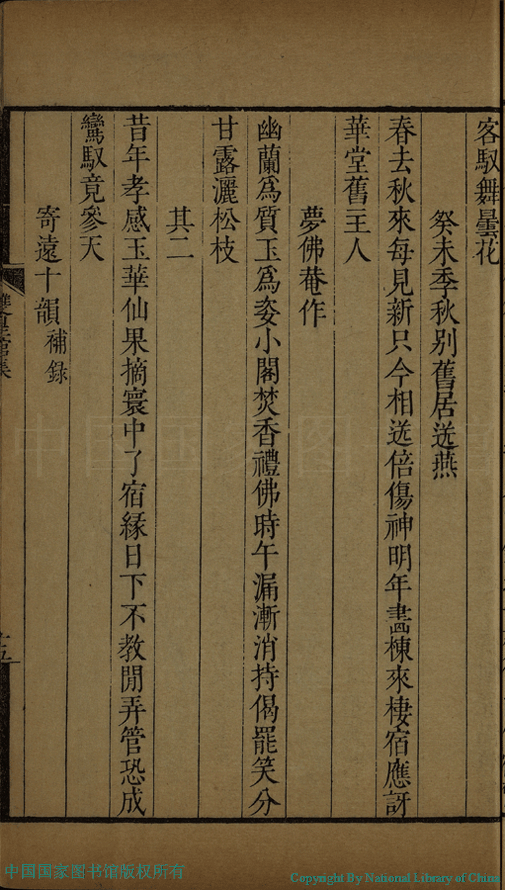 客馭舞曇花
癸未季秋別舊居送燕
春去秋來每見新只今相送倍傷神明年畫棟來棲宿應訝
華堂舊主人
夢佛菴作
幽蘭爲質玉爲姿小閣焚香禮佛時午漏漸消持偈罷笑分
甘露灑松枝
其二
昔年孝感玉華仙果摘寰中了宿緣日下不教閒弄管恐成
鸞馭竟參天
寄遠十韻補録
中国国家图书馆版权所有
Copyright By National Library of China